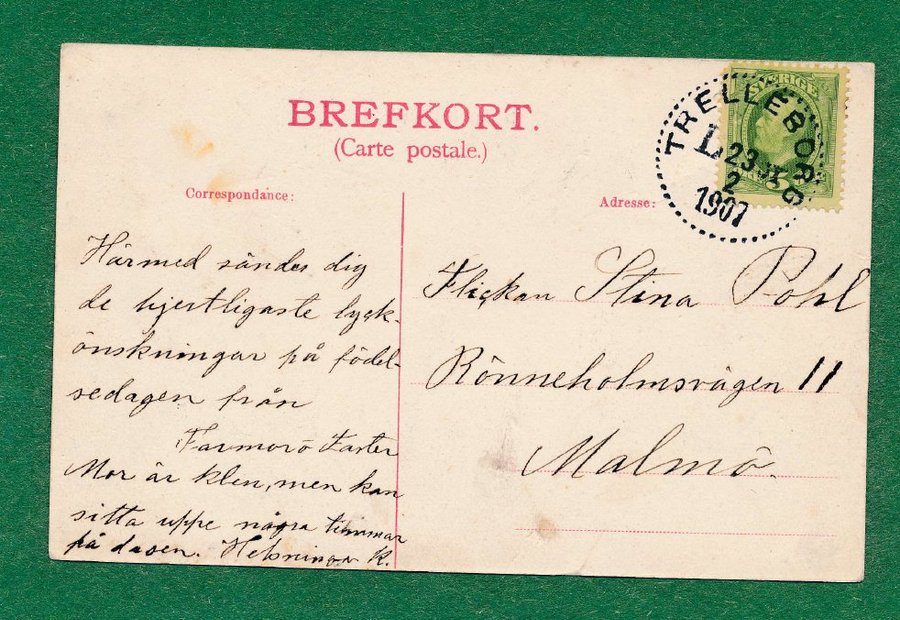 BREFKORT.
(Carte postale.)
Correspondance:
Härmed sändes dig
de hjertligaste lyck-
önskningar på födel-
sedagen från
Farmor o Faster
Mor är klen, men kan
sitta uppe några timmar
på dagen. Helsningar K.
Adresse:
SVERIGE
TRELLEBORG
L
23
2
1907
Flickan Stina Pohl
Rönneholmsvägen 11
Malmö.